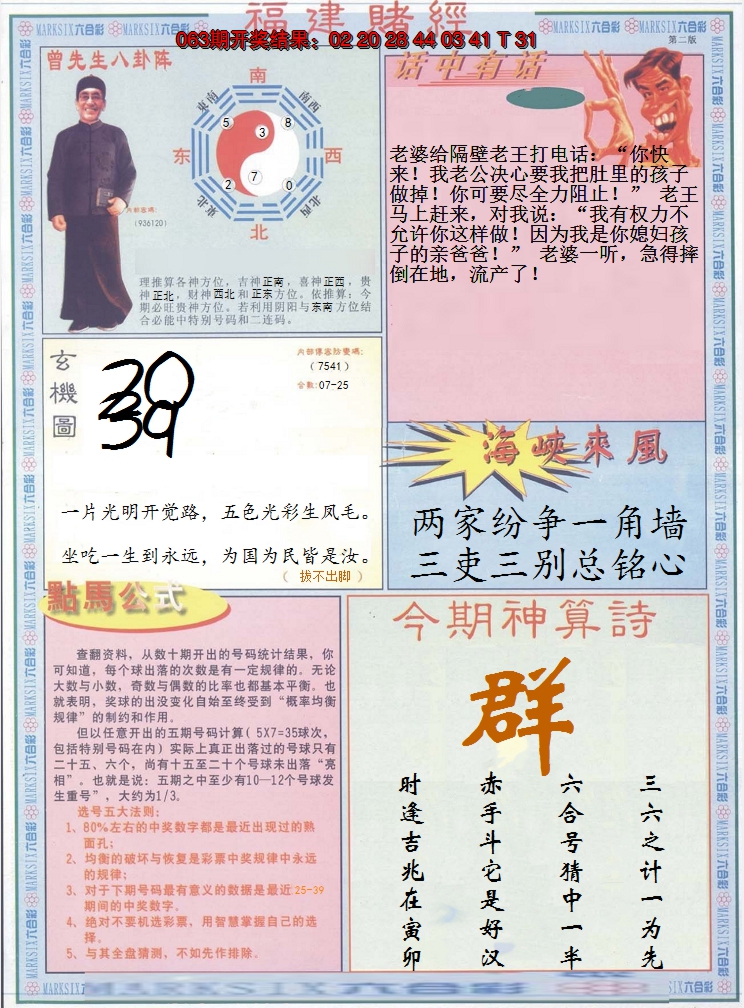 福建賭經
063期开奖结果：02 20 28 44 03 41 T 31
第二版
MARKSIX六合彩
曾先生八卦阵
南
东南
西南
东
西
东北
西北
北
5
3
8
2
7
0
内部密碼：
(936120)
理推算各神方位，吉神正南，喜神正西，贵
神正北，财神西北和正东方位。依推算：今
期必旺贵神方位。若利用阴阳与东南方位结
合必能中特别号码和二连码。
话中有话
老婆给隔壁老王打电话：“你快
来！我老公决心要我把肚里的孩子
做掉！你可要尽全力阻止！” 老王
马上赶来，对我说：“我有权力不
允许你这样做！因为我是你媳妇孩
子的亲爸爸！” 老婆一听，急得摔
倒在地，流产了！
玄機圖
内部傳密防變碼：
（7541）
合數：07-25
一片光明开觉路，五色光彩生凤毛。
坐吃一生到永远，为国为民皆是汝。
（ 拔不出脚 ）
海峽來風
两家纷争一角墙
三吏三别总铭心
點馬公式
查翻资料，从数十期开出的号码统计结果，你
可知道，每个球出落的次数是有一定规律的。无论
大数与小数，奇数与偶数的比率也都基本平衡。也
就表明，奖球的出没变化自始至终受到“概率均衡
规律”的制约和作用。
但以任意开出的五期号码计算( 5X7=35球次，
包括特别号码在内）实际上真正出落过的号球只有
二十五、六个，尚有十五至二十个号球未出落“亮
相”。也就是说：五期之中至少有10—12个号球发
生重号”，大约为1/3。
选号五大法则：
1、80%左右的中奖数字都是最近出现过的熟
面孔；
2、均衡的破坏与恢复是彩票中奖规律中永远
的规律；
3、对于下期号码最有意义的数据是最近25-39
期间的中奖数字。
4、绝对不要机选彩票，用智慧掌握自己的选
择。
5、与其全盘猜测，不如先作排除。
今期神算詩
群
三六之计一为先
六合号猜中一半
赤手斗它是好汉
时逢吉兆在寅卯